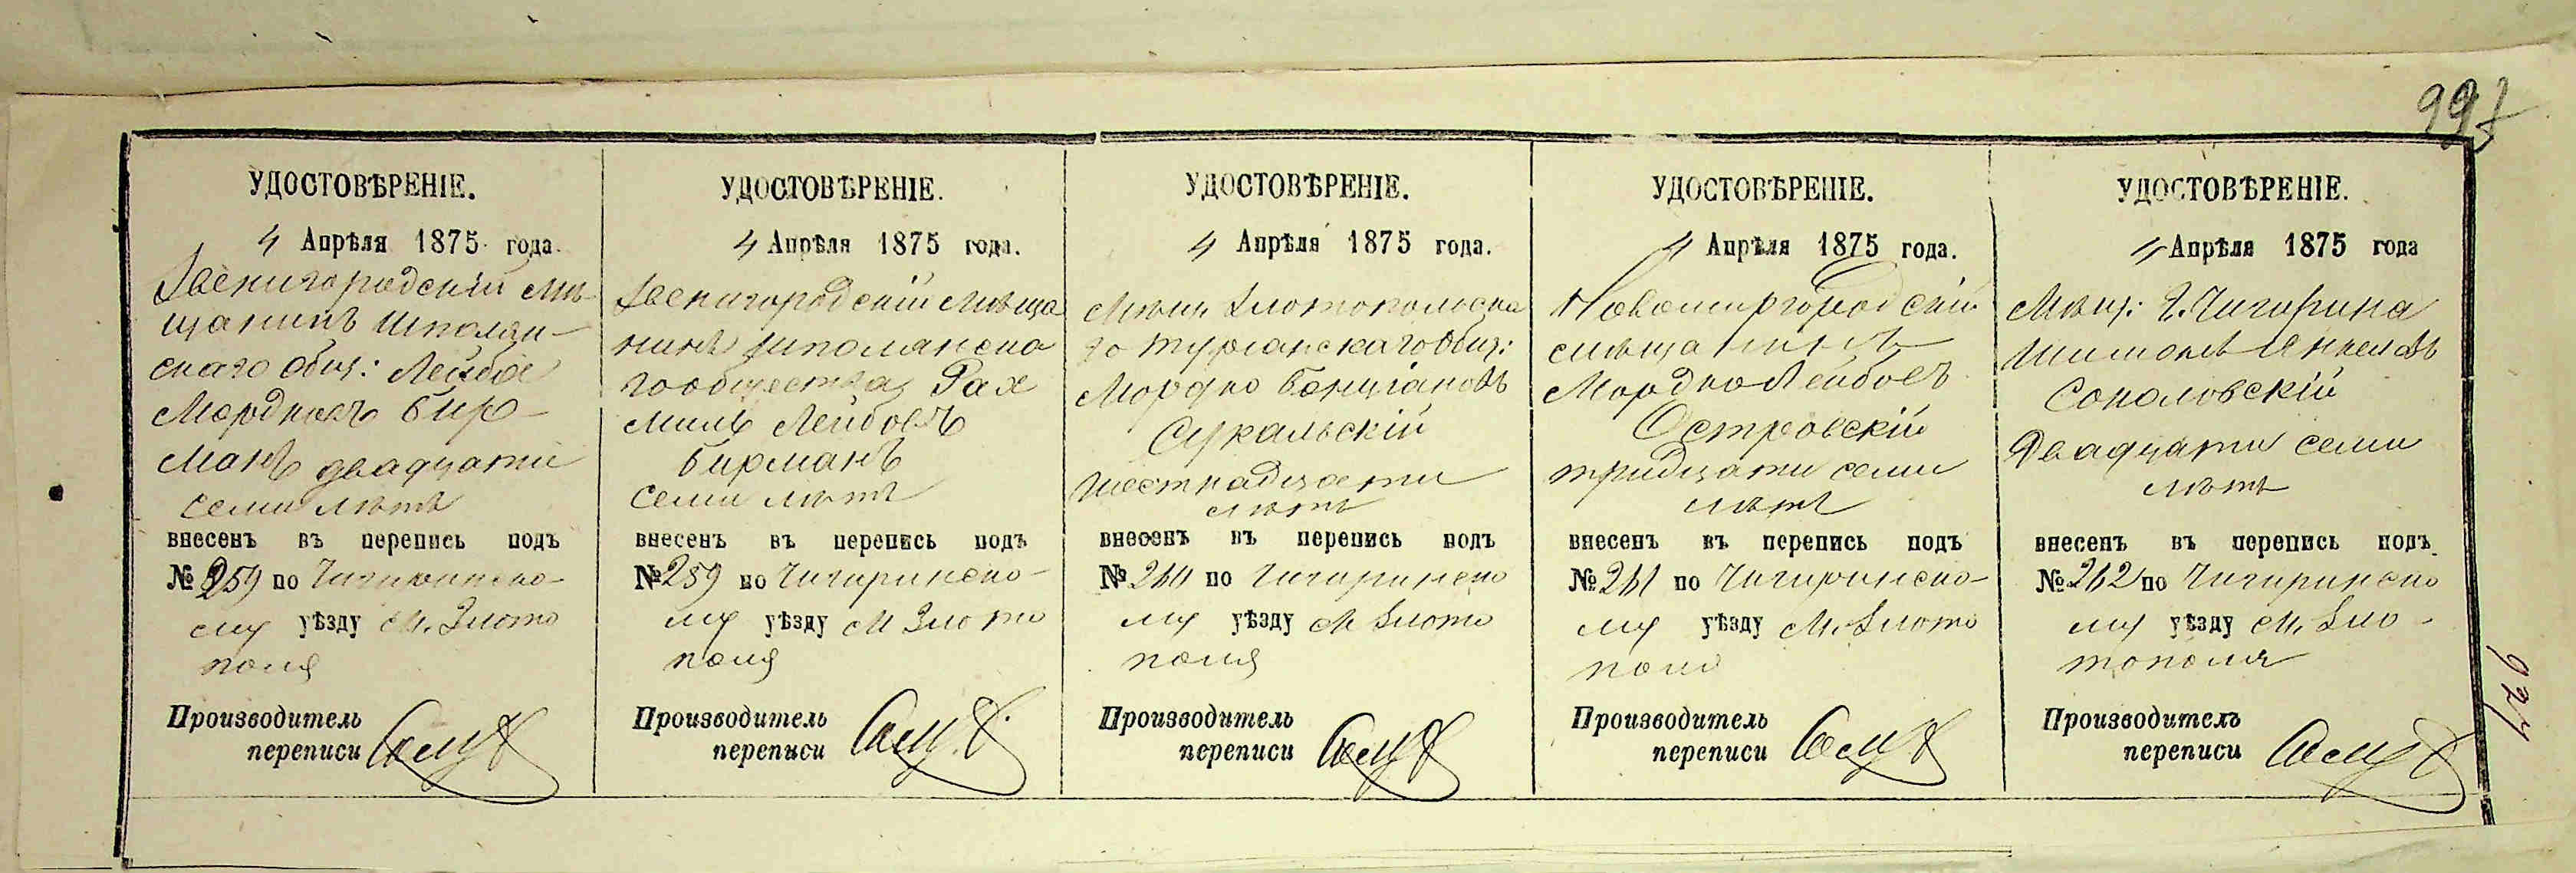 997
УДОСТОВѢРЕНІЕ.
4 Апрѣля 1875 года.
Звенигородскій мѣ-
щанинъ Шполян-
скаго общ: Лейба
Мордковъ Бир-
манъ двадцати
семи лѣтъ
внесенъ въ перепись подъ
№ 259 по Чигиринско-
му уѣзду М. Злото
поля
Производитель
переписи
УДОСТОВѢРЕНІЕ.
4 Апрѣля 1875 года.
Звенигородскій мѣща
нинъ Шполянска
го общества Рах
миль Лейбовъ
Бирманъ
семи лѣтъ
внесенъ въ перепись подъ
№ 259 по Чигиринско-
му уѣзду М Злото
поля
Производитель
переписи
УДОСТОВѢРЕНІЕ.
4 Апрѣля 1875 года.
Мѣщ. Златопольска
го Туріанскаго общ:
Мордко
Сукальскій
шестнадцати
лѣтъ
внесенъ въ перепись подъ
№ 260 по Чигиринско
му уѣзду М Злото
поля
Производитель
переписи
УДОСТОВѢРЕНІЕ.
4 Апрѣля 1875 года.
Новомиргородскій
мѣщанинъ
Мордко Лейбовъ
Островскій
тридцати семи
лѣтъ
внесенъ въ перепись подъ
№ 261 по Чигиринско-
му уѣзду М. Злото
поля
Производитель
переписи
УДОСТОВѢРЕНІЕ.
4 Апрѣля 1875 года
Мѣщ: Г. Чигирина
Шимонъ Янкелевъ
Соколовскій
Двадцати семи
лѣтъ
внесенъ въ перепись подъ
№ 262 по Чигиринско
му уѣзду М. Зло-
тополя
Производитель
переписи
997